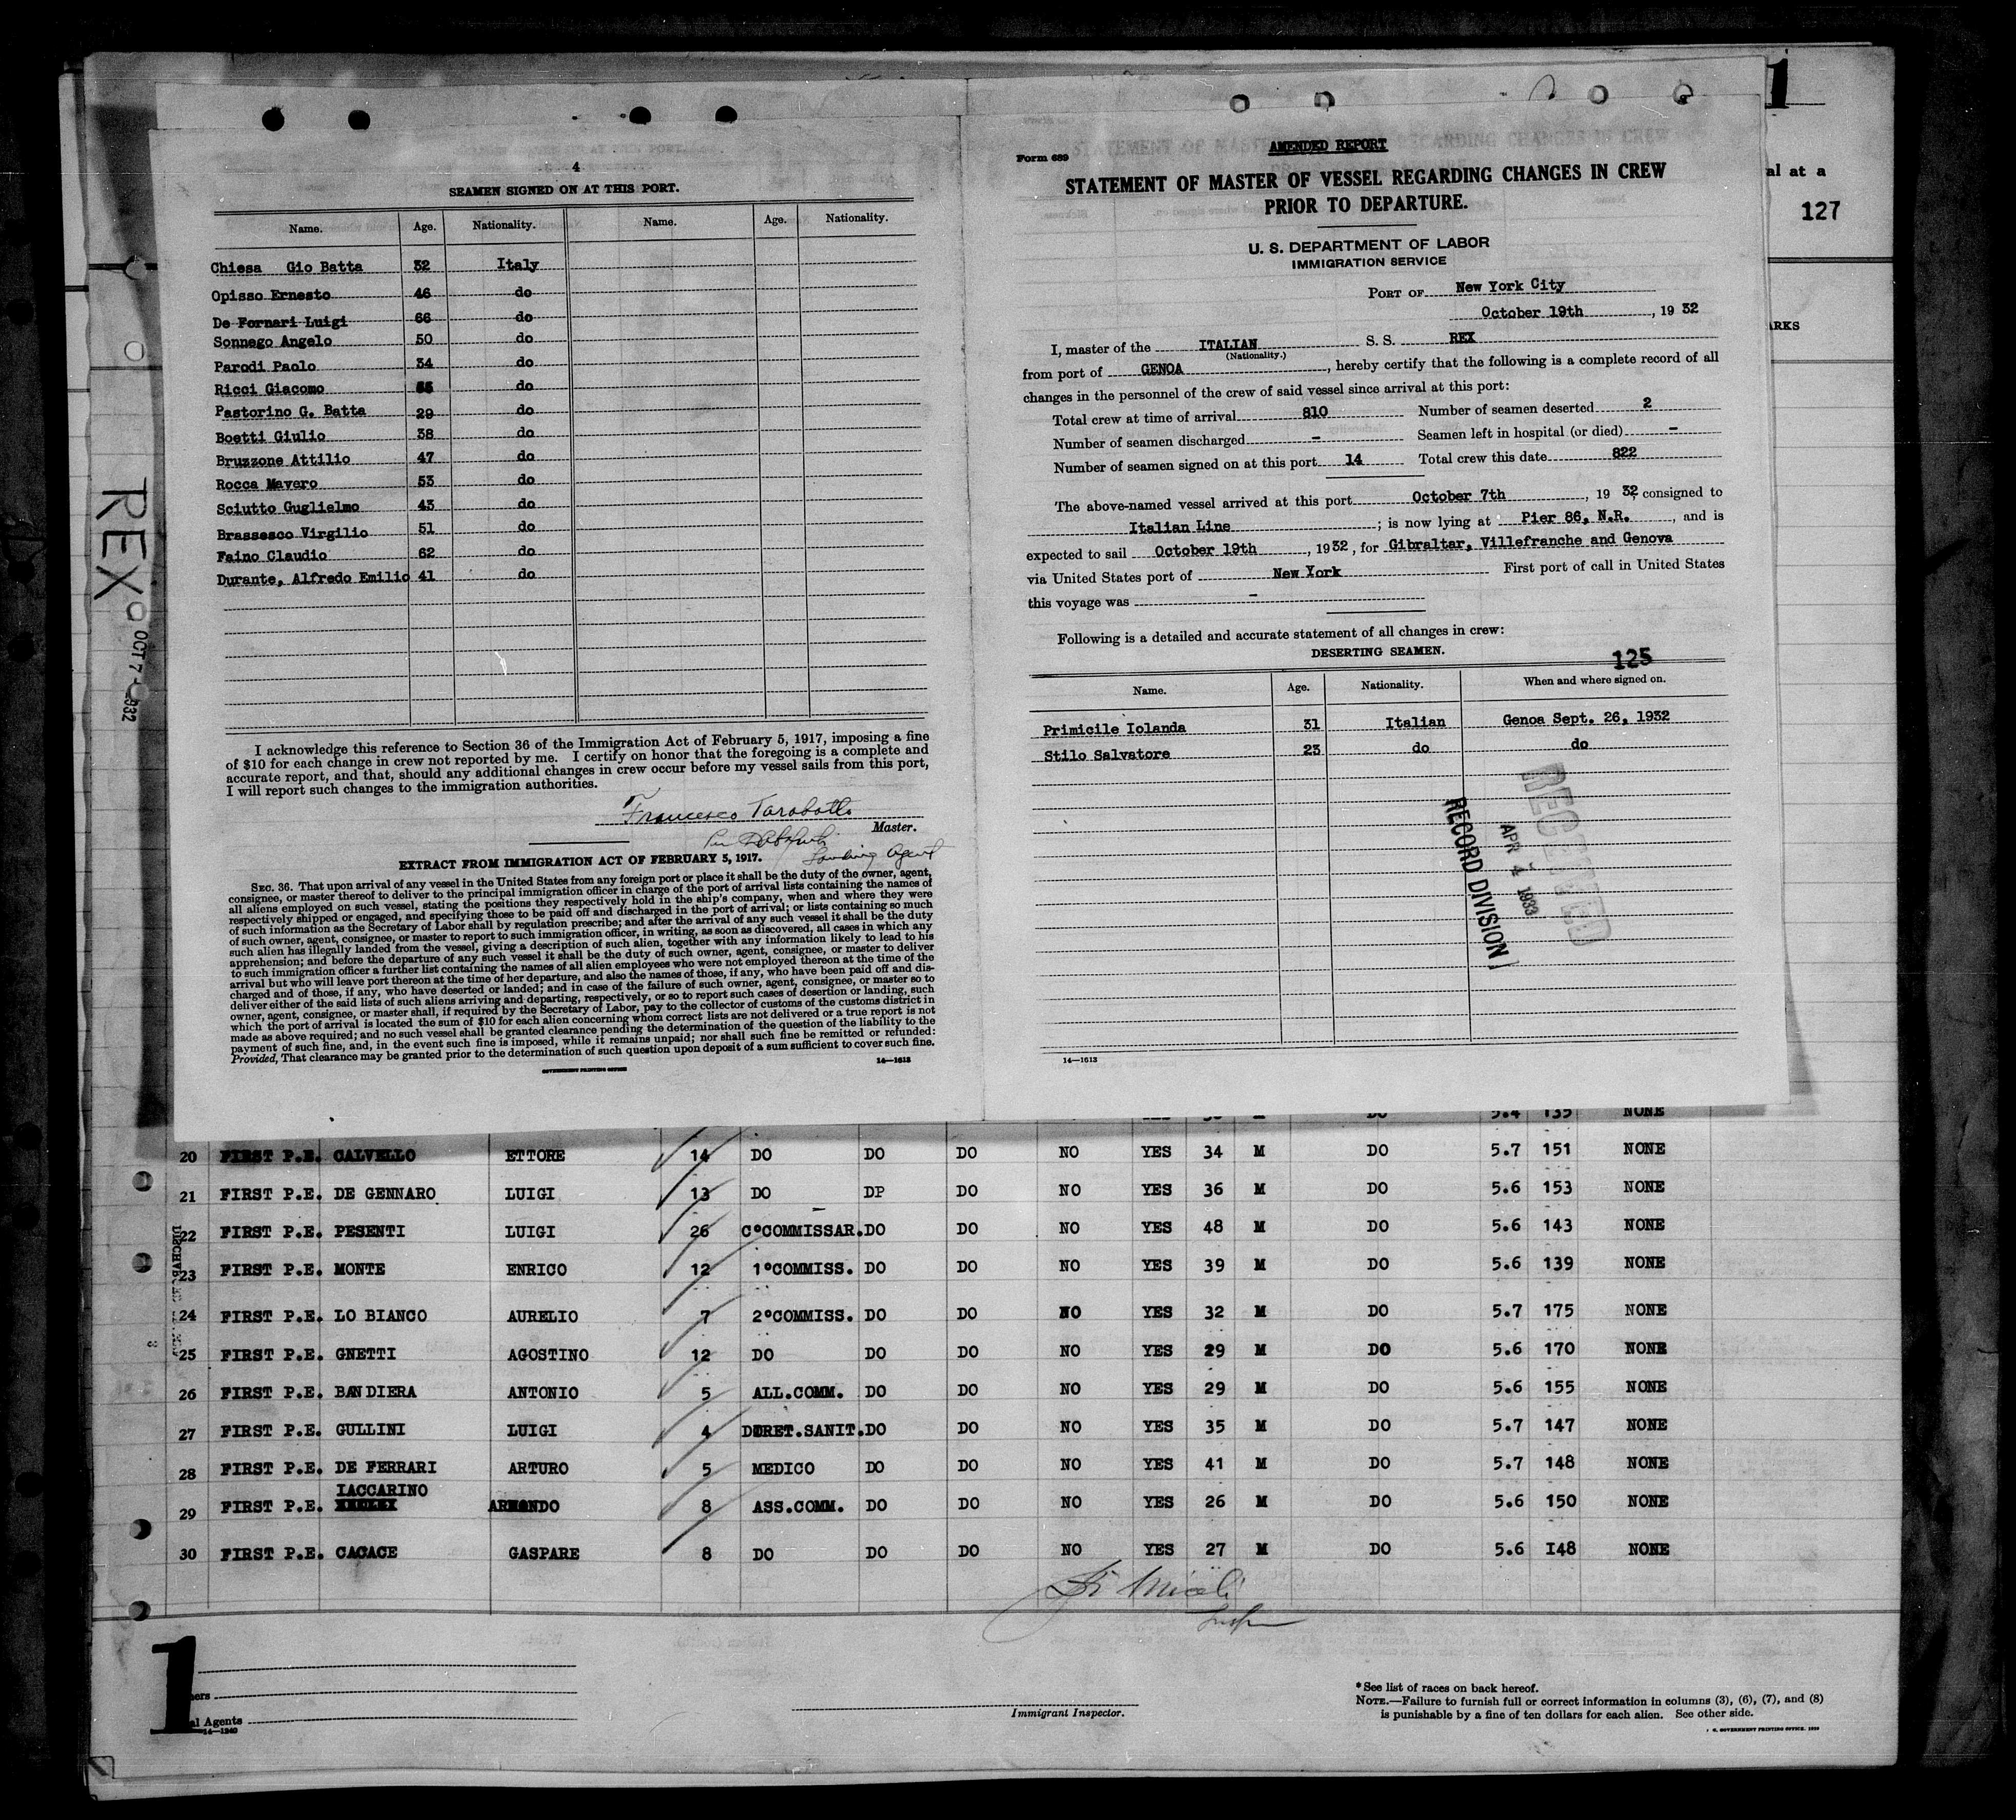 4
SEAMEN SIGNED ON AT THIS PORT.
Name. Age. Nationality. Name. Age. Nationality.
Chiesa Gio Batta 32 Italy
Opisso Ernesto 46 do
De Fornari Luigi 66 do
Sonnego Angelo 50 do
Parodi Paolo 34 do
Ricci Giacomo do
Pastorino G. Batta 29 do
Boetti Giulio 38 do
Bruzzone Attilio 47 do
Rocca Mavero 53 do
Sciutto Guglielmo 43 do
Brassesco Virgilio 51 do
Faino Claudio 62 do
Durante, Alfredo Emilio 41 do
I acknowledge this reference to Section 36 of the Immigration Act of February 5, 1917, imposing a fine
of $10 for each change in crew not reported by me. I certify on honor that the foregoing is a complete and
accurate report, and that, should any additional changes in crew occur before my vessel sails from this port,
I will report such changes to the immigration authorities.
Francesco Tarabotto
Master.
Landing Agent
EXTRACT FROM IMMIGRATION ACT OF FEBRUARY 5, 1917.
SEC. 36. That upon arrival of any vessel in the United States from any foreign port or place it shall be the duty of the owner, agent,
consignee, or master thereof to deliver to the principal immigration officer in charge of the port of arrival lists containing the names of
all aliens employed on such vessel, stating the positions they respectively hold in the ship's company, when and where they were
respectively shipped or engaged, and specifying those to be paid off and discharged in the port of arrival; or lists containing so much
of such information as the Secretary of Labor shall by regulation prescribe; and after the arrival of any such vessel it shall be the duty
of such owner, agent, consignee, or master to report to such immigration officer, in writing, as soon as discovered, all cases in which any
such alien has illegally landed from the vessel, giving a description of such alien, together with any information likely to lead to his
apprehension; and before the departure of any such vessel it shall be the duty of such owner, agent, consignee, or master to deliver
to such immigration officer a further list containing the names of all alien employees who were not employed thereon at the time of the
arrival but who will leave port thereon at the time of her departure, and also the names of those, if any, who have been paid off and dis-
charged and of those, if any, who have deserted or landed; and in case of the failure of such owner, agent, consignee, or master so to
deliver either of the said lists of such aliens arriving and departing, respectively, or so to report such cases of desertion or landing, such
owner, agent, consignee, or master shall, if required by the Secretary of Labor, pay to the collector of customs of the customs district in
which the port of arrival is located the sum of $10 for each alien concerning whom correct lists are not delivered or a true report is not
made as above required; and no such vessel shall be granted clearance pending the determination of the question of the liability to the
payment of such fine, and, in the event such fine is imposed, while it remains unpaid; nor shall such fine be remitted or refunded:
Provided, That clearance may be granted prior to the determination of such question upon deposit of a sum sufficient to cover such fine.
14—1613
GOVERNMENT PRINTING OFFICE
REX
OCT 7 1932
AMENDED REPORT
Form 689
STATEMENT OF MASTER OF VESSEL REGARDING CHANGES IN CREW
PRIOR TO DEPARTURE.
U. S. DEPARTMENT OF LABOR
IMMIGRATION SERVICE
PORT OF New York City
October 19th, 19 32
I, master of the ITALIAN S. S. REX
(Nationality.)
from port of GENOA, hereby certify that the following is a complete record of all
changes in the personnel of the crew of said vessel since arrival at this port:
Total crew at time of arrival 810 Number of seamen deserted 2
Number of seamen discharged - Seamen left in hospital (or died) -
Number of seamen signed on at this port 14 Total crew this date 822
The above-named vessel arrived at this port October 7th, 19 32 consigned to
Italian Line; is now lying at Pier 86, N.R., and is
expected to sail October 19th, 1932, for Gibraltar, Villefranche and Genova
via United States port of New York First port of call in United States
this voyage was -
Following is a detailed and accurate statement of all changes in crew:
DESERTING SEAMEN.
125
Name. Age. Nationality. When and where signed on.
Primicile Iolanda 31 Italian Genoa Sept. 26, 1932
Stilo Salvatore 23 do do
RECEIVED
APR 4 1933
RECORD DIVISION
14—1613
1
al at a
127
ARKS
5.4 135 NONE
20 FIRST P.E. CALVELLO ETTORE 14 DO DO DO NO YES 34 M DO 5.7 151 NONE
21 FIRST P.E. DE GENNARO LUIGI 13 DO DP DO NO YES 36 M DO 5.6 153 NONE
22 FIRST P.E. PESENTI LUIGI 26 C°COMMISSAR. DO DO NO YES 48 M DO 5.6 143 NONE
23 FIRST P.E. MONTE ENRICO 12 1°COMMISS. DO DO NO YES 39 M DO 5.6 139 NONE
24 FIRST P.E. LO BIANCO AURELIO 7 2°COMMISS. DO DO NO YES 32 M DO 5.7 175 NONE
25 FIRST P.E. GNETTI AGOSTINO 12 DO DO DO NO YES 29 M DO 5.6 170 NONE
26 FIRST P.E. BANDIERA ANTONIO 5 ALL.COMM. DO DO NO YES 29 M DO 5.6 155 NONE
27 FIRST P.E. GULLINI LUIGI 4 DIRET.SANIT. DO DO NO YES 35 M DO 5.7 147 NONE
28 FIRST P.E. DE FERRARI ARTURO 5 MEDICO DO DO NO YES 41 M DO 5.7 148 NONE
IACCARINO
29 FIRST P.E. ARMANDO 8 ASS.COMM. DO DO NO YES 26 M DO 5.6 150 NONE
30 FIRST P.E. CACACE GASPARE 8 DO DO DO NO YES 27 M DO 5.6 I48 NONE
1
ners
al Agents
14—1240
Immigrant Inspector.
* See list of races on back hereof.
NOTE.—Failure to furnish full or correct information in columns (3), (6), (7), and (8)
is punishable by a fine of ten dollars for each alien. See other side.